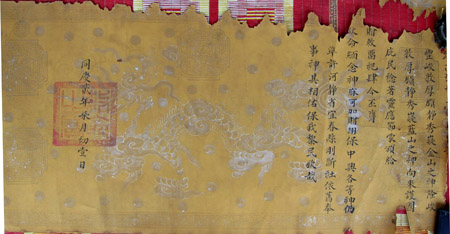 敦厚顒靜秀嶷金山之神
敦厚顒靜秀嶷藍山之神向來護國
庇民稔著靈應節蒙頒給
封 祀肆今丕
命緬念神庥可加贈翊保中興各等神仍
準許河靜省宜春縣 社依舊奉
事神其相佑保我黎民欽哉
同慶貳年柒月初壹日